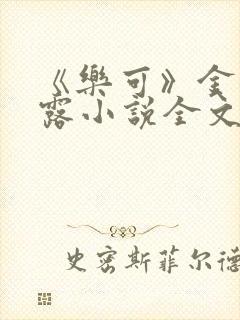 《樂可》金
露小說全文
史密斯菲尔德